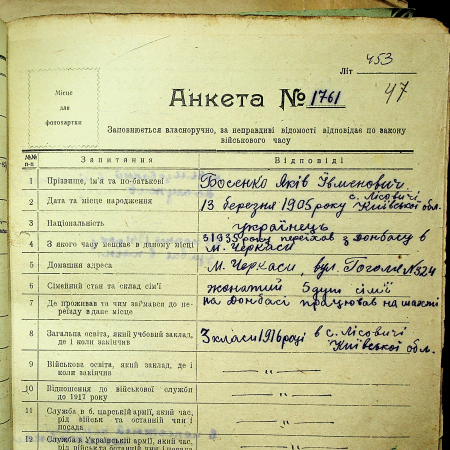 Літ 453
47
Місце
для
фотокартки
Анкета № 1761
Заповнюється власноручно, за неправдиві відомості відповідає по закону
військового часу
№№ п-п Запитання Відповіді
1 Прізвище, ім'я та по-батькові Босенко Яків Ївменович.
2 Дата та місце народження 13 березня 1905 року с. Лісовичі Київської обл.
3 Національність українець
4 З якого часу мешкає в даному місці з 1935 року переїхав з Донбасу в м. Черкаси
5 Домашня адреса м. Черкаси, вул. Гоголя № 324
6 Сімейний стан та склад сім'ї жонатий 5 душ сім'ї
7 Де проживав та чим займався до пе-
реїзду в дане місце на Донбасі працював на шахті
8 Загальна освіта, який учбовий заклад,
де і коли закінчив 3 класи 1916 році в с. Лісовичі Київської обл.
9 Військова освіта, який заклад, де і
коли закінчив — „ —
10 Відношення до військової служби
до 1917 року — „ —
11 Служба в б. царській армії, який час,
рід військ та останній чин і
посада — „ —
12 Служба в Українській армії, який час,
рід військ та останній чин і посада — „ —